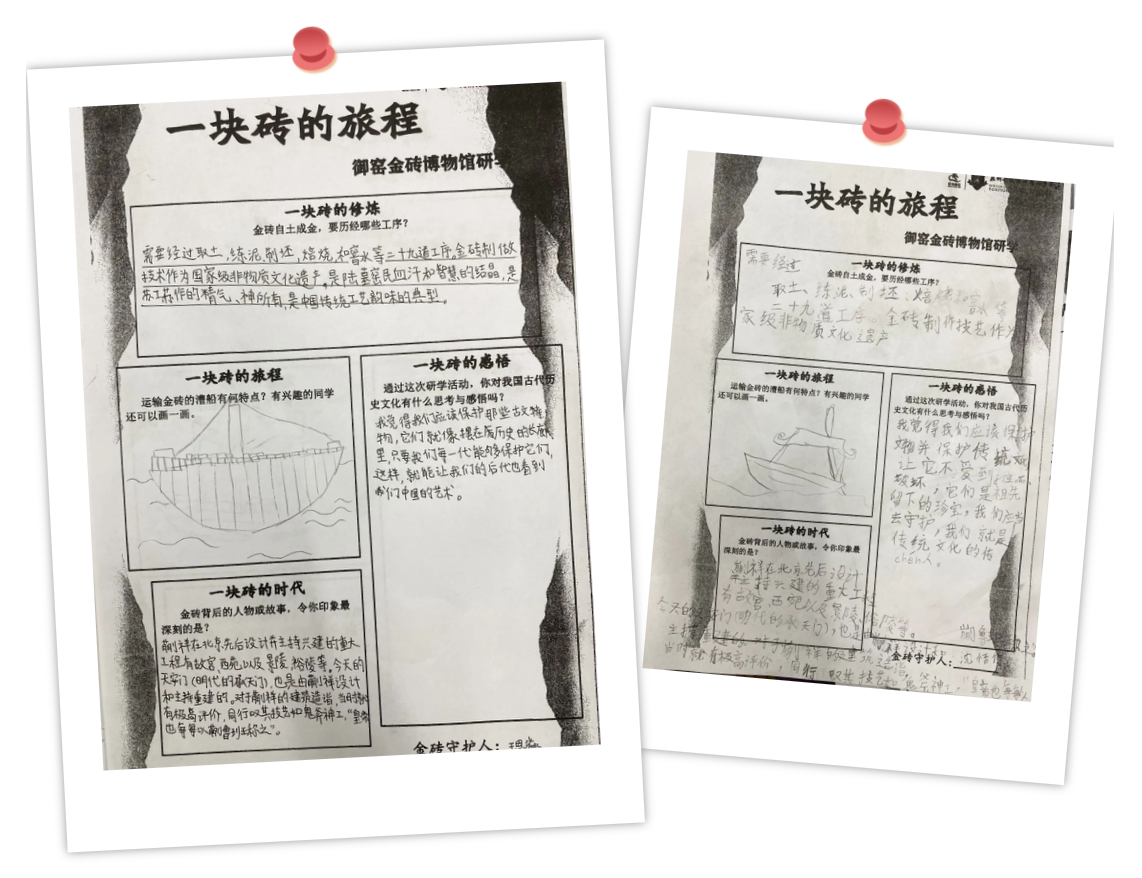 一块砖的旅程
御窑金砖博物馆研学
一块砖的修炼
金砖自土成金,要历经哪些工序?
需要经过取土,练泥,制坯,焙烧,和窨水等二十九道工序。金砖制做
技术作为国家级非物质文化遗产。是陆墓窑民血汗和智慧的结晶,是
苏工苏作的精气、神所有,是中国传统工艺韵味的典型。
一块砖的旅程
运输金砖的漕船有何特点?有兴趣的同学
还可以画一画。
一块砖的感悟
通过这次研学活动,你对我国古代历
史文化有什么思考与感悟吗?
我觉得我们应该保护那些古文物,
它们就像摆在历史的长廊
里,只要我们每一代能够保护它们,
这样,就能让我们的后代也看到
我们中国的艺术。
一块砖的时代
金砖背后的人物或故事,令你印象最
深刻的是?
蒯祥在北京先后设计并主持兴建的重大
工程有故宫西苑以及景陵、裕陵等。今天的
天安门(明代的承天门),也是由蒯祥设计
和主持重建的。对于蒯祥的建筑造诣,当时就
有极高评价,同行叹其技艺如鬼斧神工,“皇帝
也每每以蒯鲁班称之”。
金砖守护人:
一块砖的旅程
御窑金砖博物馆研学
一块砖的修炼
金砖自土成金,要历经哪些工序?
需要经过
取土、练泥、制坯、焙烧和窨水等
二十九道工序。金砖制作技艺作为
家级非物质文化遗产
一块砖的旅程
运输金砖的漕船有何特点?有兴趣的同学
还可以画一画。
一块砖的感悟
通过这次研学活动,你对我国古代历
史文化有什么思考与感悟吗?
我觉得我们应该保护
并保护传统
让它不受到
破坏,它们是祖先
留下的珍宝,我们应当
去守护,我们就是
传统文化的传
chén人。
一块砖的时代
金砖背后的人物或故事,令你印象最
深刻的是?
蒯祥在北京先后设计
并主持兴建的重大工
有故宫、西苑以及景陵、裕陵等。
今天的天安门(明代的承天门),也是
主持重建的。对于蒯祥的建筑造诣,
当时就有极高评价,同行叹其技艺如鬼斧神工,“皇帝也每每以
金砖守护人: